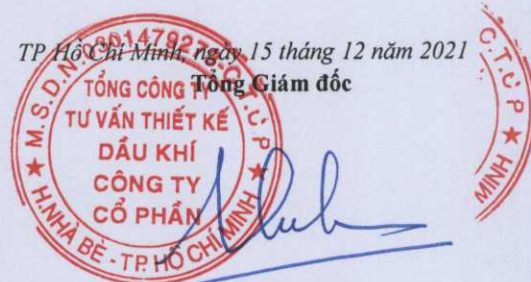 TP Hồ Chí Minh, ngày 15 tháng 12 năm 2021
Tổng Giám đốc
TỔNG CÔNG TY
TƯ VẤN THIẾT KẾ
DẦU KHÍ
CÔNG TY
CỔ PHẦN
H.NHÀ BÈ - TP. HỒ CHÍ MINH
C.T.C.P
MINH